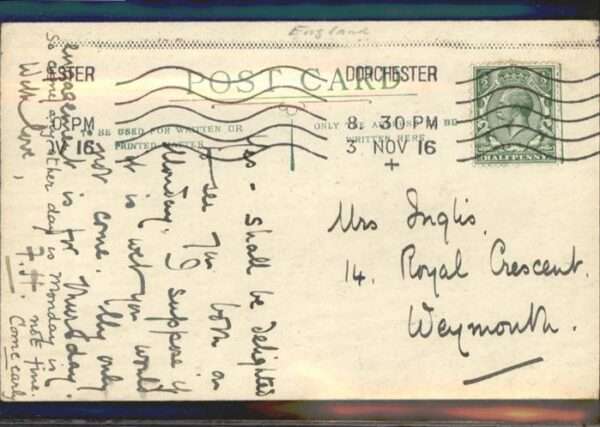 England
POST CARD
TO BE USED FOR WRITTEN OR
PRINTED MATTER
ONLY THE ADDRESS TO BE
WRITTEN HERE
ESTER
0 PM
V 16
DORCHESTER
8. 30 PM
3 NOV 16
HALFPENNY
Mrs Inglis.
14. Royal Crescent.
Weymouth.
Yes - shall be delighted
to see you both on
Monday. I suppose if
it is wet you would
not come. My only
engagement is for Thursday.
So come another day is Monday is
not fine.
With love,
F. H.
Come early